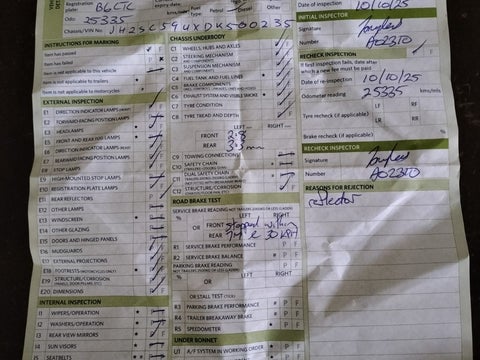 Registration B6CTC
Odo: 25335
Chassis/VIN No
Date of inspection 10/10/25
INITIAL INSPECTOR
Signature
Number A023TO
RECHECK INSPECTION
If first inspection fails, date after
which a new fee must be paid
Date of re-inspection 10/10/25
Odometer reading 25335 kms/mls
Tyre recheck (if applicable) LF RF
LR RR
Brake recheck (if applicable)
RECHECK INSPECTOR
Signature
Number A023TO
REASONS FOR REJECTION
reflector
INSTRUCTIONS FOR MARKING
Item has passed
Item has failed
Item not applicable to this vehicle
Item not applicable to trailers
Item not applicable to motorcycles
EXTERNAL INSPECTION
E1 DIRECTION INDICATOR LAMPS
E2 FORWARD-FACING POSITION LAMPS
E3 HEADLAMPS
E5 FRONT AND REAR FOG LAMPS
E6 DIRECTION INDICATOR LAMPS
E7 REARWARD-FACING POSITION LAMPS
E8 STOP LAMPS
E9 HIGH-MOUNTED STOP LAMPS
E10 REGISTRATION PLATE LAMPS
E11 REAR REFLECTORS
E12 OTHER LAMPS
E13 WINDSCREEN
E14 OTHER GLAZING
E15 DOORS AND HINGED PANELS
E16 MUDGUARDS
E17 EXTERNAL PROJECTIONS
E18 FOOTRESTS
E19 STRUCTURE/CORROSION
E20 DIMENSIONS
INTERNAL INSPECTION
I1 WIPERS/OPERATION
I2 WASHERS/OPERATION
I3 REAR VIEW MIRRORS
I4 SUN VISORS
I5 SEATBELTS
CHASSIS UNDERBODY
C1 WHEELS, HUBS AND AXLES
C2 STEERING MECHANISM AND COMPONENTS
C3 SUSPENSION MECHANISM AND COMPONENTS
C4 FUEL TANK AND FUEL LINES
C5 BRAKE COMPONENTS
C6 EXHAUST SYSTEM AND VISIBLE SMOKE
C7 TYRE CONDITION
C8 TYRE TREAD AND DEPTH
LEFT RIGHT
FRONT 2.8
REAR 3.3 mm
C9 TOWING CONNECTIONS
C10 SAFETY CHAIN
C11 DUAL SAFETY CHAIN
C12 STRUCTURE/CORROSION
ROAD BRAKE TEST
SERVICE BRAKE READING
LEFT RIGHT
OR stopped within
7M @ 30 KPH
R1 SERVICE BRAKE PERFORMANCE
R2 SERVICE BRAKE BALANCE
PARKING BRAKE READING
LEFT RIGHT
OR
OR STALL TEST
R3 PARKING BRAKE PERFORMANCE
R4 TRAILER BREAKAWAY BRAKE
R5 SPEEDOMETER
UNDER BONNET
U1 A/F SYSTEM IN WORKING ORDER